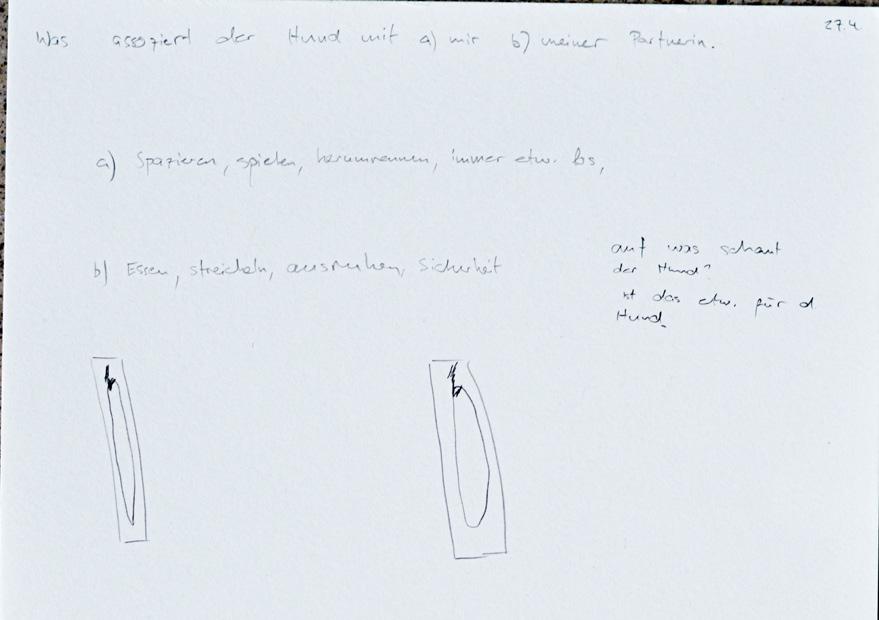 27.4.
Was assoziert der Hund mit a) mir b) meiner Partnerin.
a) Spazieren, spielen, herumrennen, immer etw. los,
b) Essen, streicheln, ausruhen, Sicherheit
auf was schaut
der Hund?
ist das etw. für d
Hund.